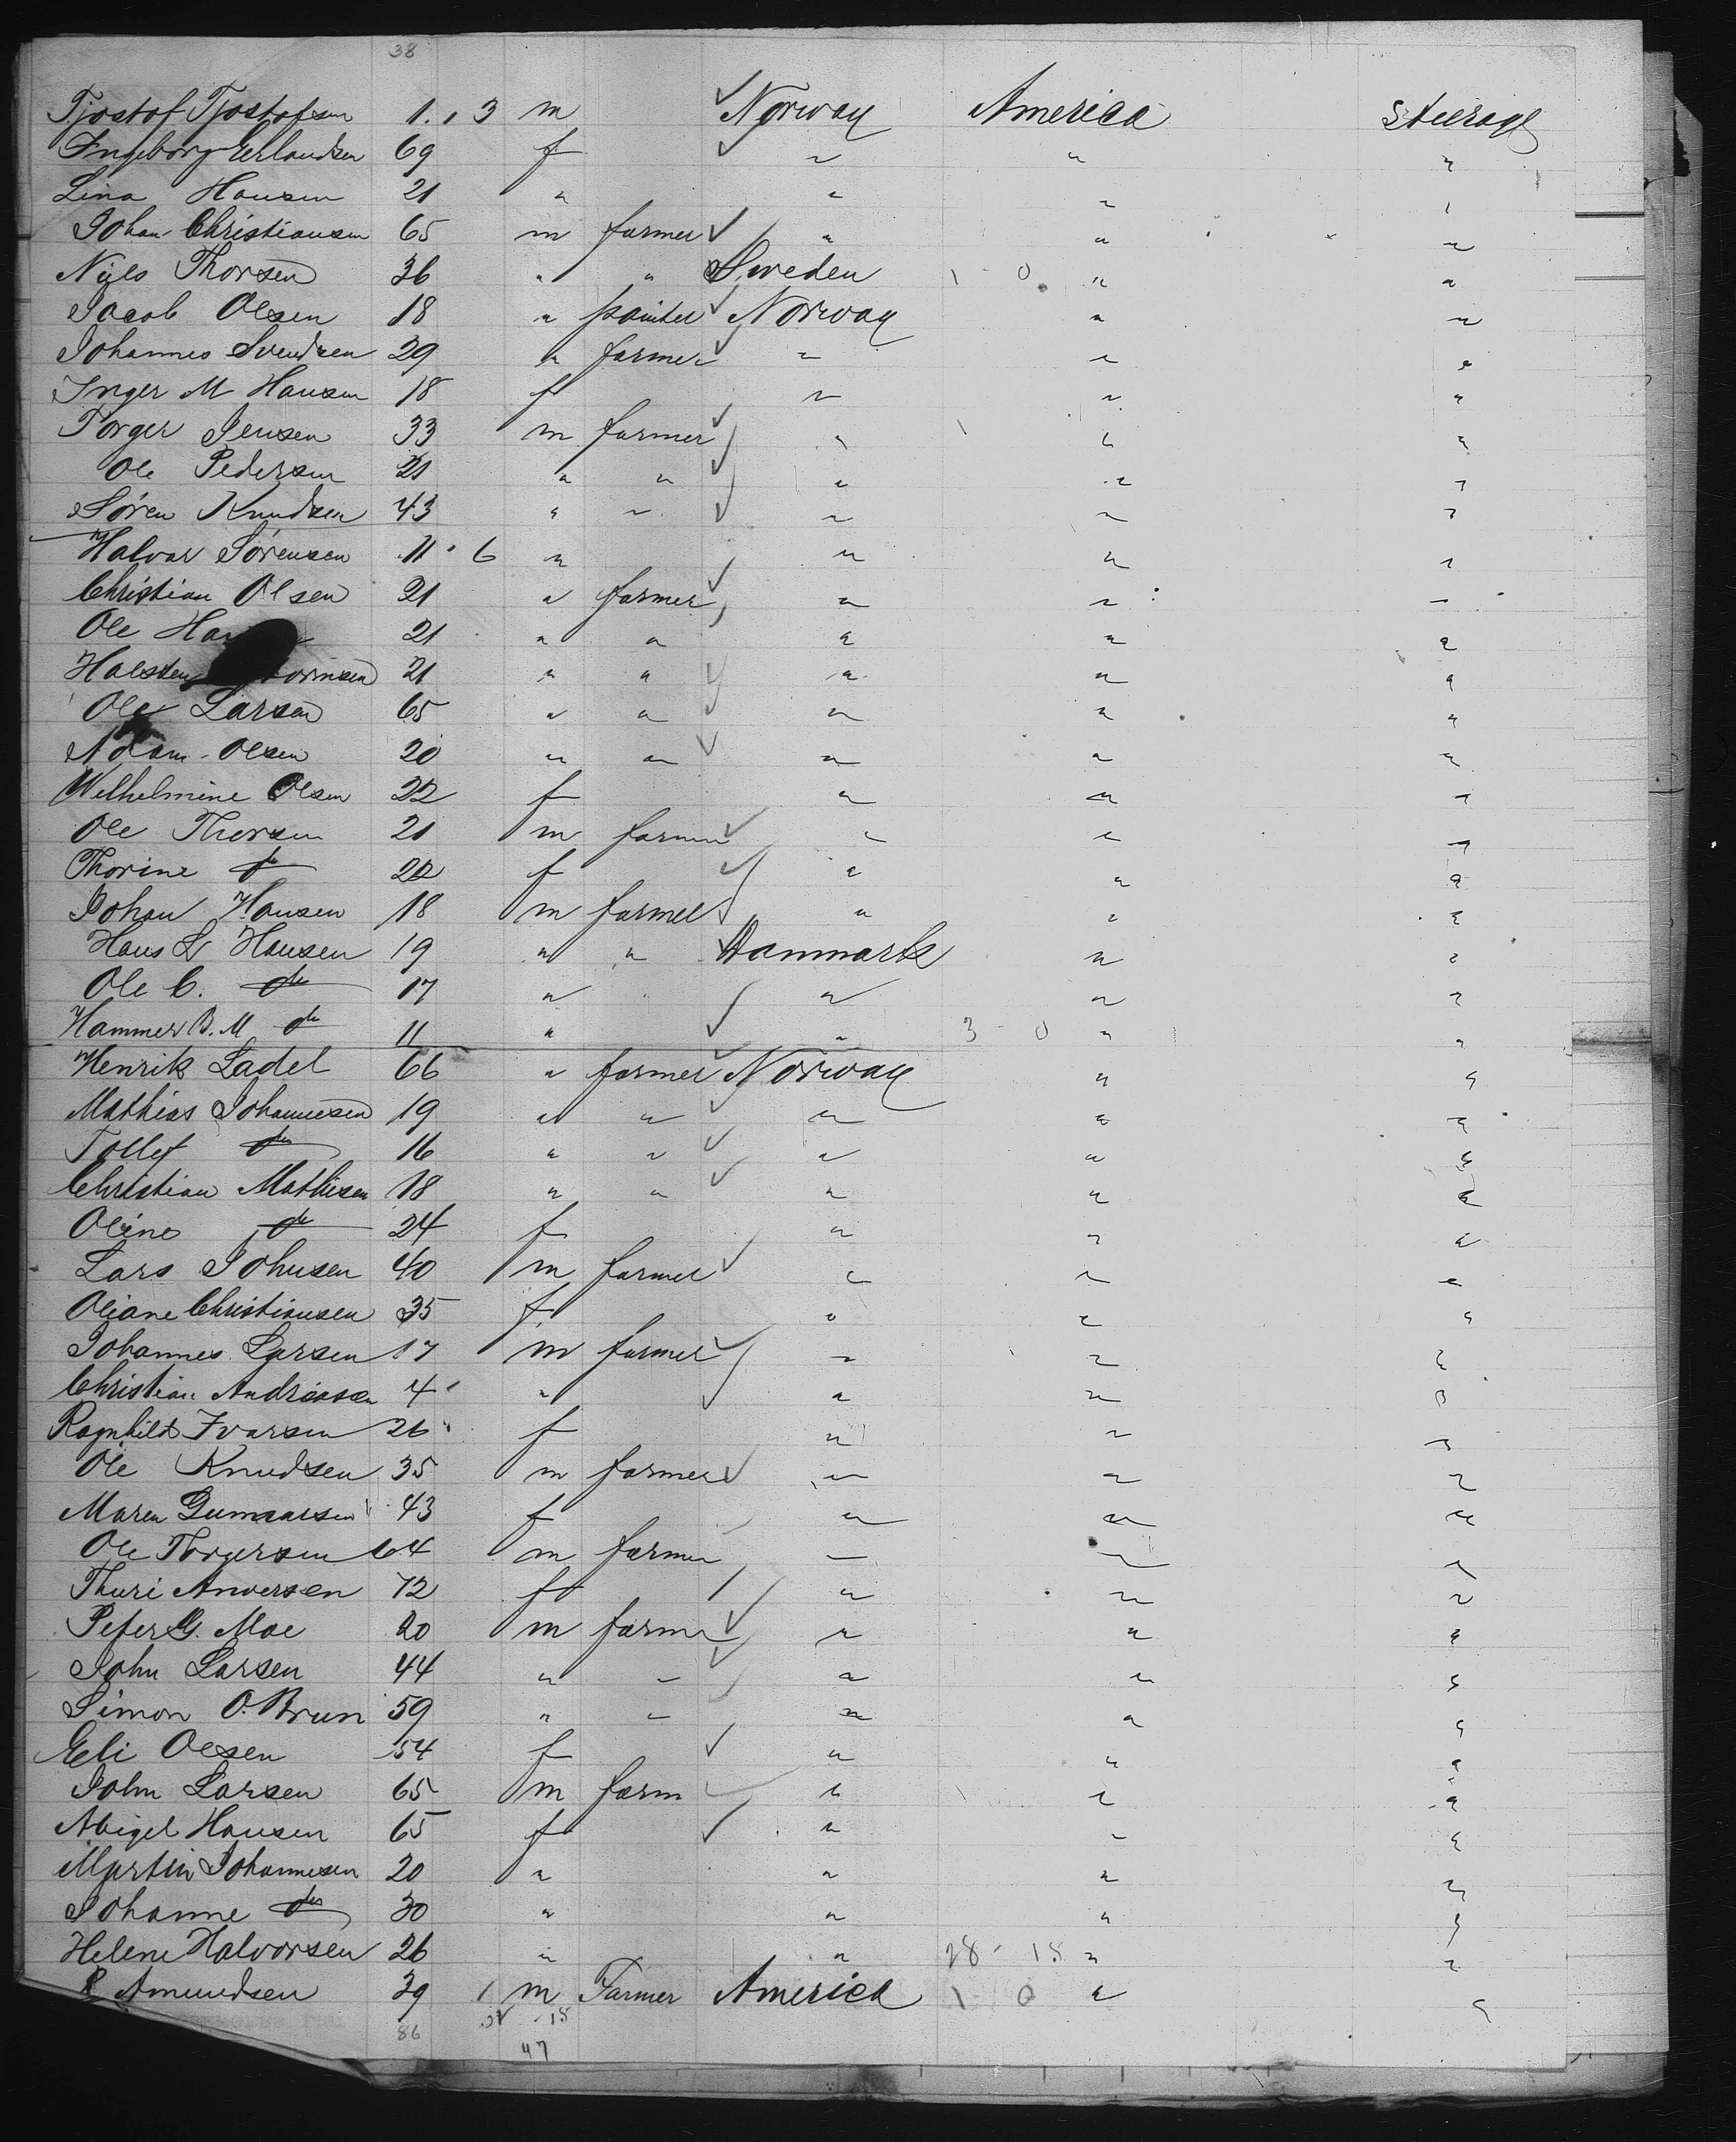 38
Tjostof Tjostofsen 1., 3 m Norway America Steerage
Ingeborg Erlandsen 69 f " " "
Lina Hansen 21 " " " "
Johan Christiansen 65 m farmer " " "
Nijls Thorsen 36 " " Sweden 1 - 0 " "
Jacob Olsen 18 " painter Norway " "
Johannes Svendsen 29 " farmer " " "
Inger M Hansen 18 f " " "
Torger Jensen 33 m farmer " " "
Ole Pedersen 21 " " " " "
Søren Knudsen 43 " " " " "
Halvar Sørensen 11 . 6 " " " "
Christian Olsen 21 " farmer " " "
Ole 21 " " " " "
Halsten 21 " " " " "
Ole Larsen 65 " " " " "
Adam Olsen 20 " " " " "
Welhelmine Olsen 22 f " " "
Ole Thorsen 21 m farmer " " "
Thorine do 22 f " " "
Johan Hansen 18 m farmer " " "
Hans L Hansen 19 " " Danmark " "
Ole C. do 17 " " " "
Hammer B. M do 11 " " 3 - 0 " "
Henrik Ladel 66 " farmer Norway " "
Mathias Johannesen 19 " " " " "
Tollef do 16 " " " " "
Christian Mathisen 18 " " " " "
Oline do 24 f " " "
Lars Johnsen 40 m farmer " " "
Oliane Christiansen 35 f " " "
Johannes Larsen 17 m farmer " " "
Christian Andreasen 4 " " " "
Ragnhild Ivarsen 26 f " " "
Ole Knudsen 35 m farmer " " "
Maren Gunnarsen 43 f " " "
Ole Torgersen 64 m farmer " " "
Thuri Anversen 72 f " " "
Peter G. Moe 20 m farmer " " "
John Larsen 44 " " " " "
Simon O. Brun 59 " " " " "
Eli Olsen 54 f " " "
John Larsen 65 m farm " " "
Abigel Hansen 65 f " " "
Martin Johannesen 20 " " " "
Johanne do 30 " " " "
Helene Halvorsen 26 " " 28 - 18 " "
R Amundsen 39 1 m Farmer America 1 0 " "
86 - 18
47